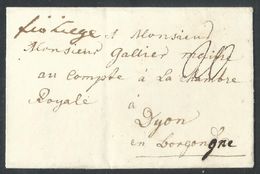 fco Liege A Monsieur
Monsieur Gallier maitre
au Compte à La Chambre
Royale
à
Dyon
en borgongne